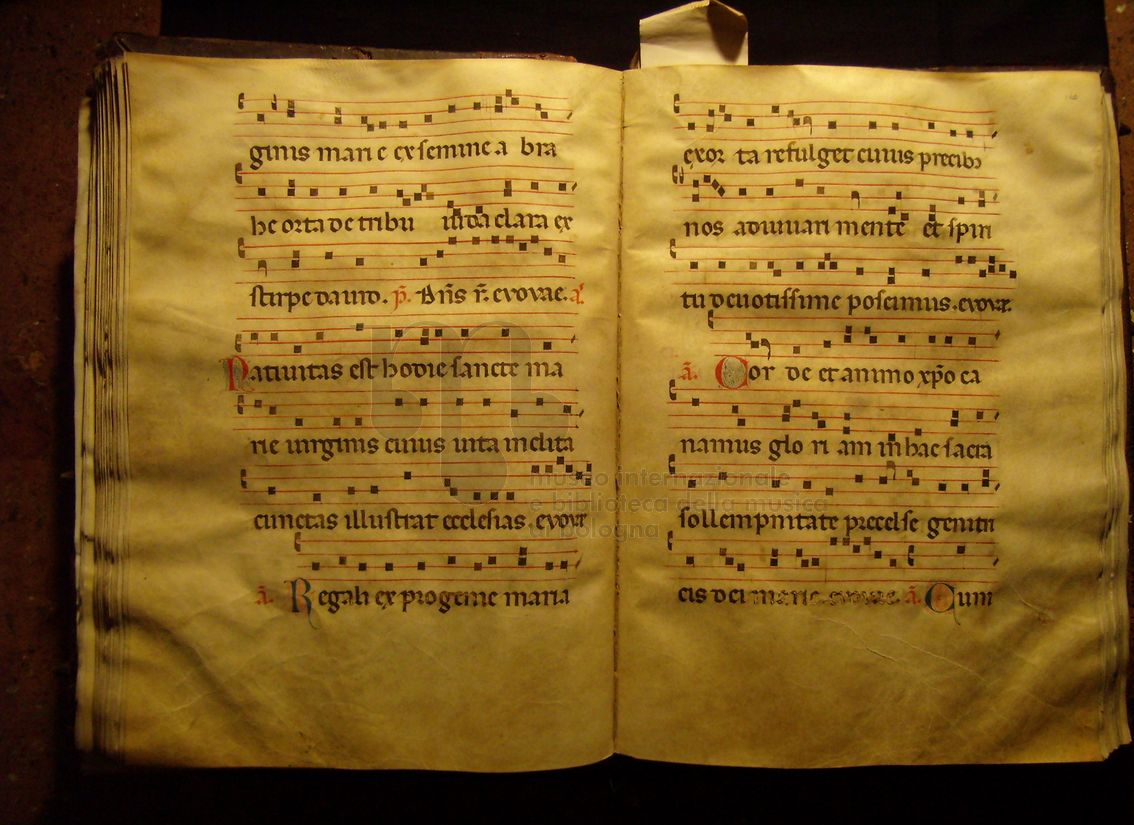 ginis marie ex semine a bra
he orta de tribu iuda clara ex
stirpe dauid. p̃. Dñs r̃. evovae. a̅.
Natiuitas est hodie sancte ma
rie uirginis cuius uita inclita
cunctas illustrat ecclesias. evovae
a̅. Regali ex progenie maria
exor ta refulget cuius precibꝫ
nos adiuuari mente et spiri
tu deuotissime poscimus. evovae.
a̅. Cor de et animo xp̄o ca
namus glo ri am in hac sacra
sollempnitate precelse genitri
cis dei marie. evovae. a̅. Cum
museo internazionale
e biblioteca della musica
di bologna